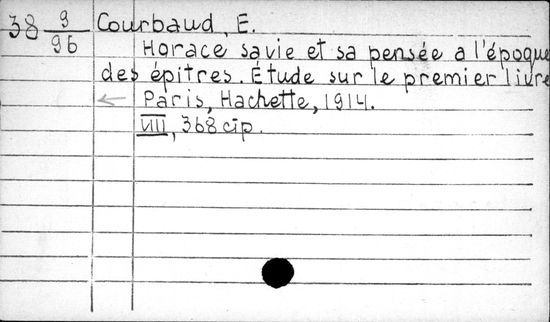 38 9/96 Courbaud, E.
Horace sa vie et sa pensée a l'époque
des épitres. Étude sur le premier livre
Paris, Hachette, 1914.
VIII, 368 cip.